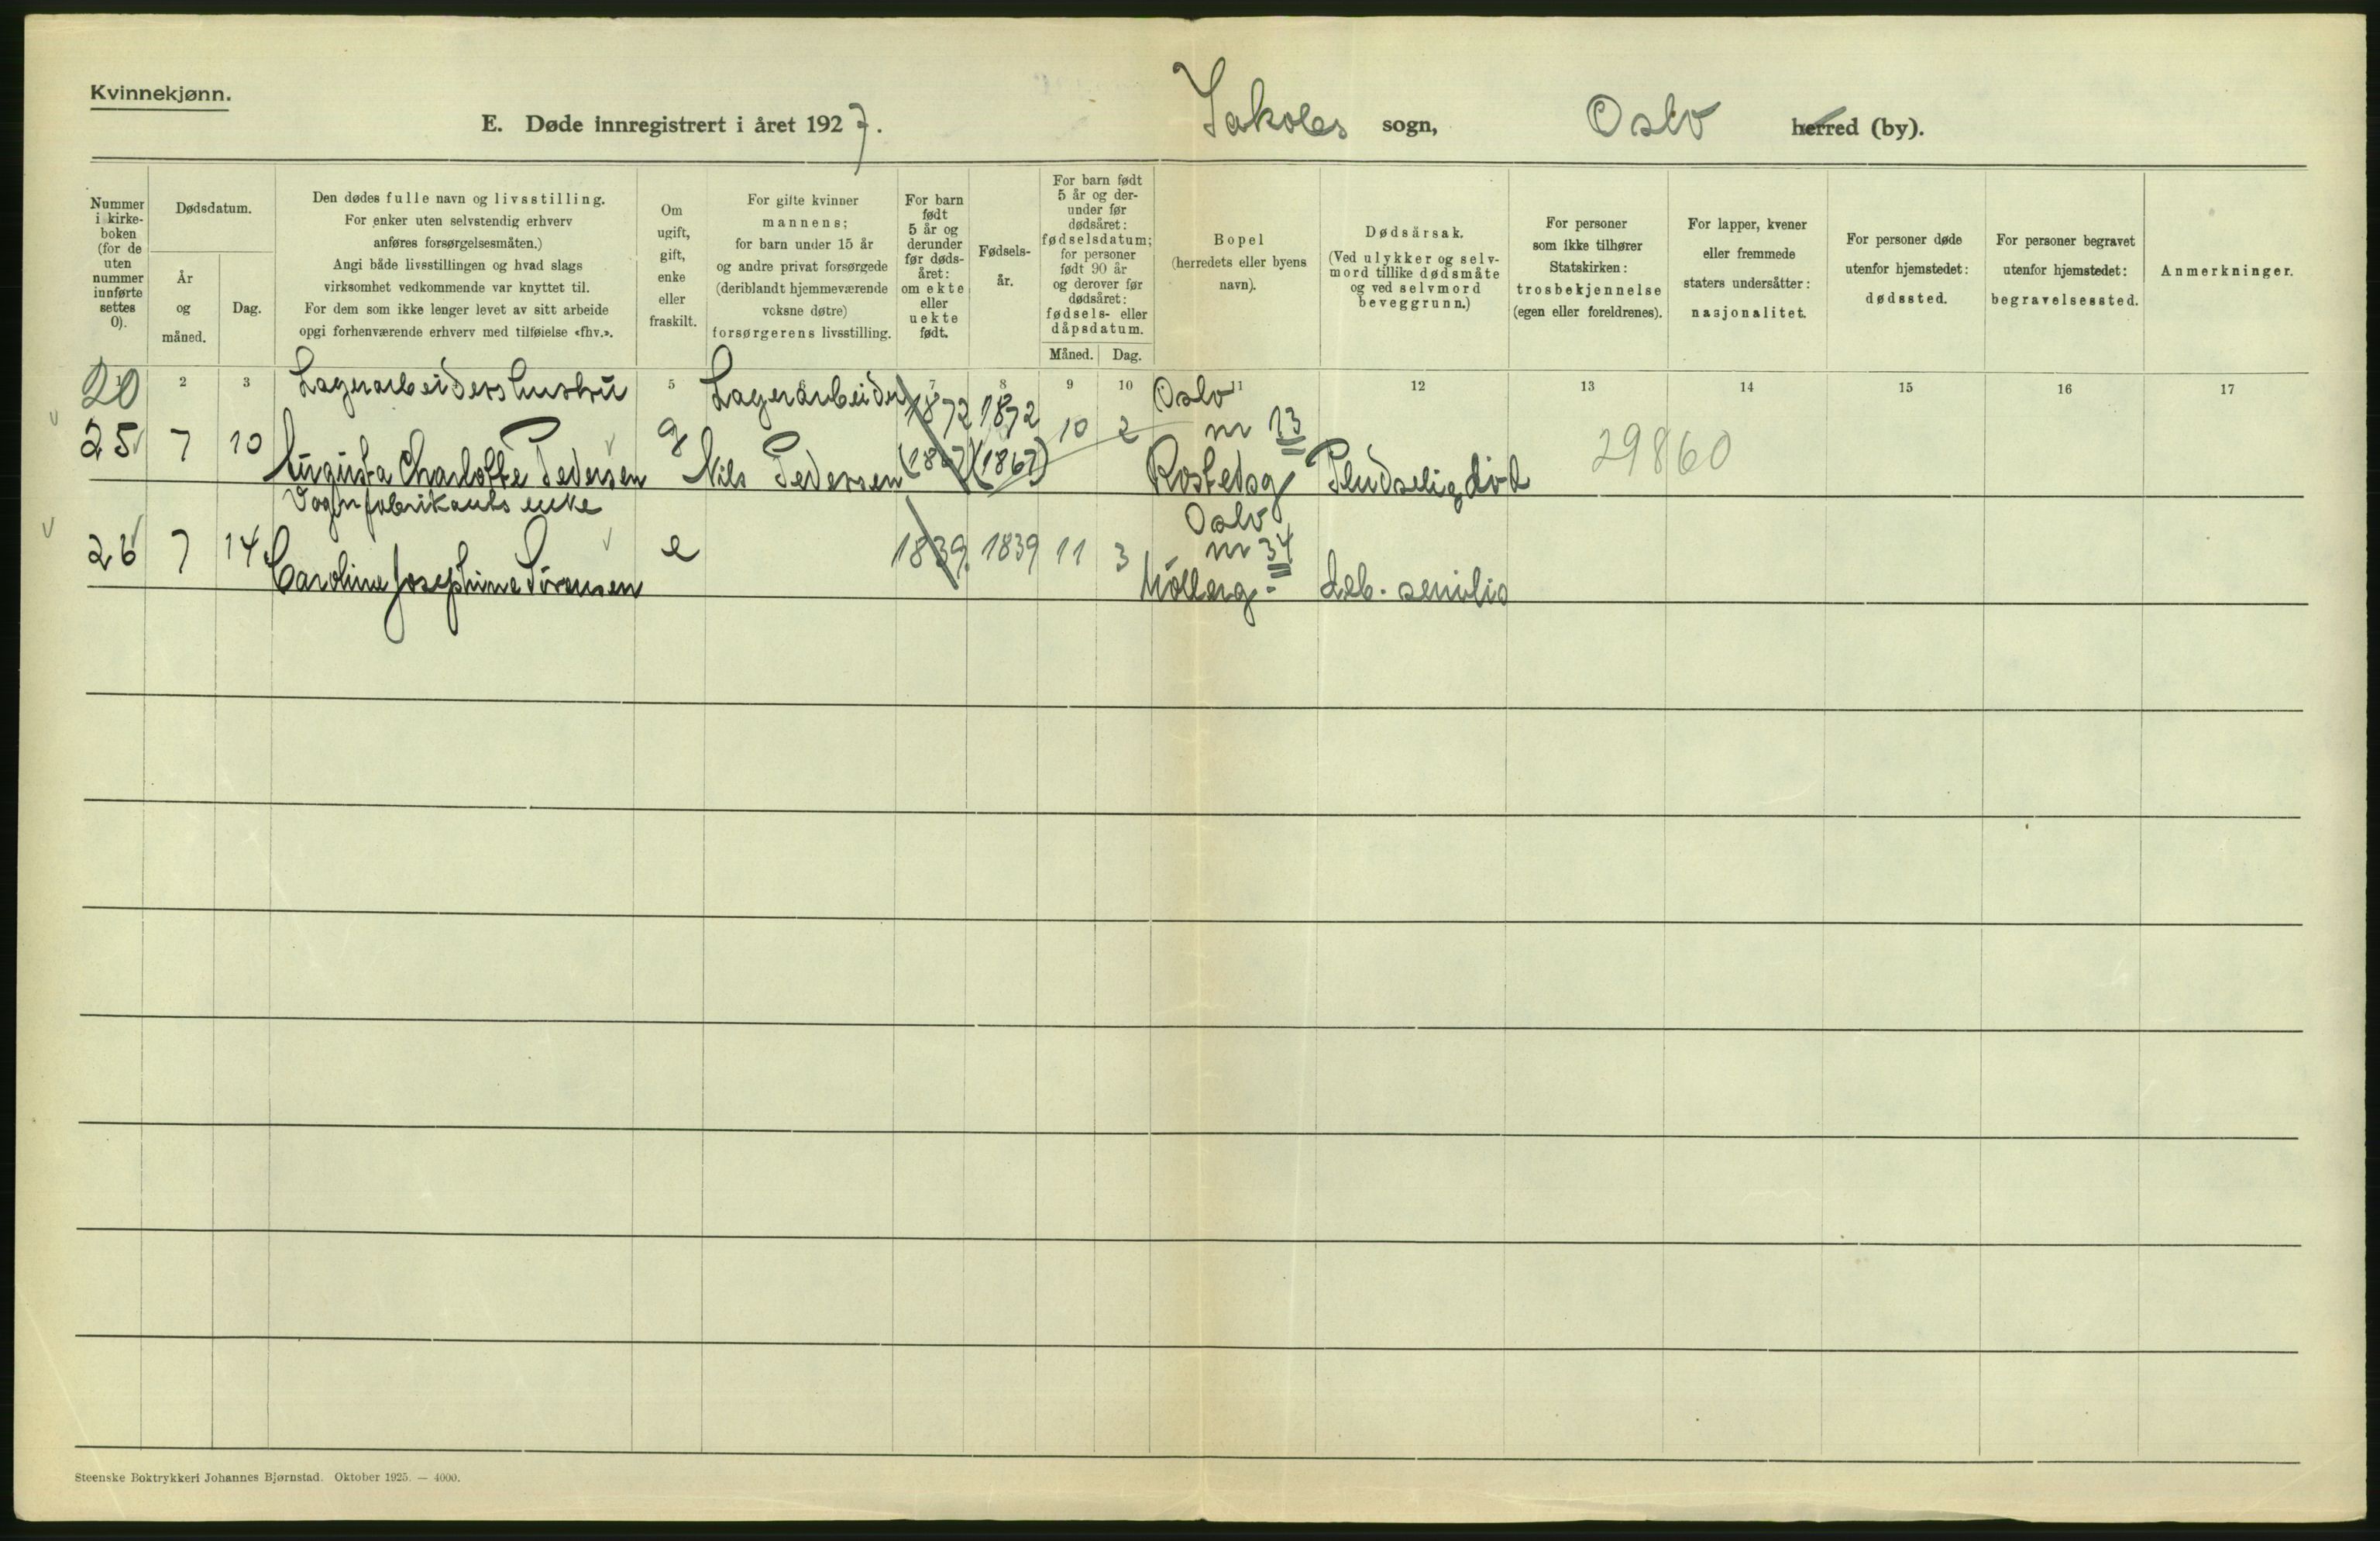 Kvinnekjønn.
E. Døde innregistrert i året 1927. Jakobs sogn, Oslo herred (by).
Nummer i kirke-boken (for de uten nummer innførte settes 0).
Dødsdatum.
År og måned.
Dag.
Den dødes fulle navn og livsstilling.
For enker uten selvstendig erhverv
anføres forsørgelsesmåten.)
Angi både livsstillingen og hvad slags
virksomhet vedkommende var knyttet til.
For dem som ikke lenger levet av sitt arbeide
opgi forhenværende erhverv med tilføielse «fhv.».
Om
ugift,
gift,
enke
eller
fraskilt.
For gifte kvinner
mannens;
for barn under 15 år
og andre privat forsørgede
(deriblandt hjemmeværende
voksne døtre)
forsørgerens livsstilling.
For barn
født
5 år og
derunder
før døds-
året:
om ekte
eller
uekte
født.
Fødsels-
år.
For barn født
5 år og der-
under før
dødsåret:
fødselsdatum;
for personer
født 90 år
og derover før
dødsåret:
fødsels- eller
dåpsdatum.
Måned. Dag.
Bopel
(herredets eller byens
navn).
Dødsårsak.
(Ved ulykker og selv-
mord tillike dødsmåte
og ved selvmord
beveggrunn.)
For personer
som ikke tilhører
Statskirken:
trosbekjennelse
(egen eller foreldrenes).
For lapper, kvener
eller fremmede
staters undersåtter:
nasjonalitet.
For personer døde
utenfor hjemstedet:
dødssted.
For personer begravet
utenfor hjemstedet:
begravelsessted.
Anmerkninger.
2 3 5 7 8 9 10 11 12 13 14 15 16 17
20 Lagerarbeiders hustru Lagerarbeider 1872 1872 Oslo
25 7 10 Augusta Charlotte Pedersen g Nils Pedersen (1867) (1867) 10 2 nr 13
Rostedsg Pludselig död 29860
Vognfabrikants enke Oslo
26 7 14 Caroline Josephine Sörensen e 1839 1839 11 3 nr 34
Möllerg - deb. senilis
Steenske Boktrykkeri Johannes Bjørnstad. Oktober 1925. — 4000.